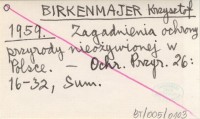 BIRKENMAJER Krzysztof
1959. Zagadnienia ochrony
przyrody nieożywionej w
Polsce. — Ochr. Przyr. 26:
16-32, Sum.
B1/005/0003